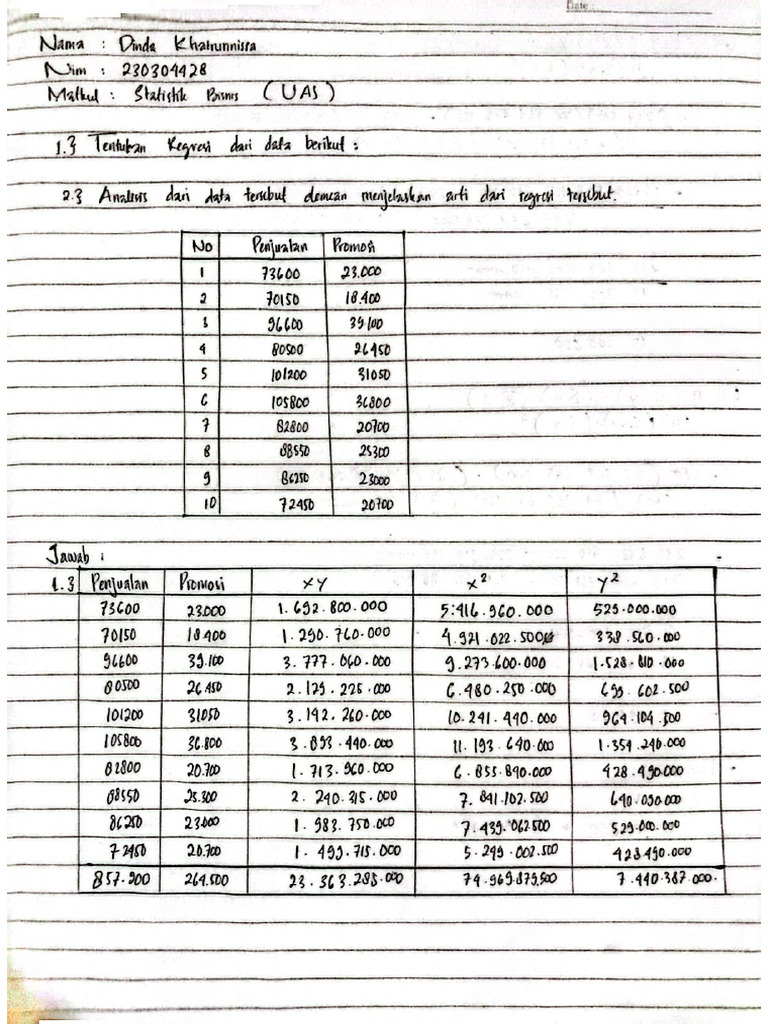 Date :
Nama : Dinda Khairunnisa
Nim : 230304428
Matkul : Statistik Bisnis (UAS)
1.} Tentukan Regresi dari data berikut :
2.} Analisis dari data tersebut dengan menjelaskan arti dari regresi tersebut.
No Penjualan Promosi
1 73600 23.000
2 70150 18.400
3 96600 39100
4 80500 26450
5 101200 31050
6 105800 36800
7 82800 20700
8 88550 25300
9 86250 23000
10 72450 20700
Jawab :
1.} Penjualan Promosi XY X² Y²
73600 23.000 1.692.800.000 5.416.960.000 529.000.000
70150 18.400 1.290.760.000 4.921.022.500 338.560.000
96600 39.100 3.777.060.000 9.273.600.000 1.528.810.000
80500 26.450 2.129.225.000 6.480.250.000 699.602.500
101200 31050 3.142.260.000 10.241.440.000 964.104.500
105800 36.800 3.893.440.000 11.193.640.000 1.354.240.000
82800 20.700 1.713.960.000 6.855.840.000 428.490.000
88550 25.300 2.240.315.000 7.841.102.500 640.090.000
86250 23.000 1.983.750.000 7.439.062.500 529.000.000
72450 20.700 1.499.715.000 5.249.002.500 428490.000
857.900 264.500 23.363.285.000 74.969.879.500 7.440.387.000.